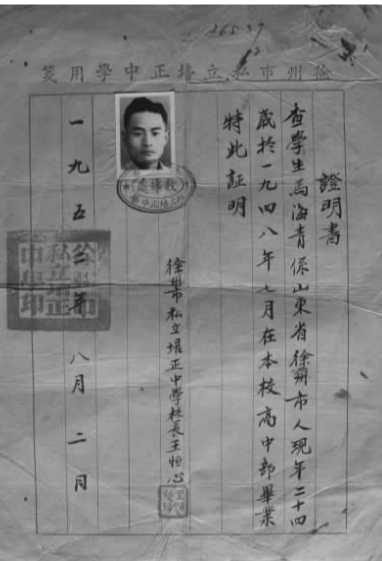 徐州市私立培正中學用箋
證明書
查學生馬海青係山東省徐州市人現年二十四
歲於一九四八年七月在本校高中部畢業
特此証明
徐州市私立培正中學校長王恒心
一九五二年八月二日